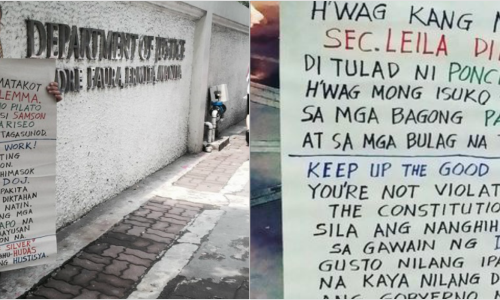 DEPARTMENT OF JUSTICE
PADRE FAURA, ERMITA, MANILA
MATAKOT
LEMMA.
O PILATO
SI SAMSON
ARISEO
TAGASUNOD.
WORK!
TING
ON.
HIMASOK
D.O.J.
PAKITA
DIKTAHAN
NATIN.
NG MGA
APO NA
AYUSAN
ON NA
SILVER"
HUDAS
NG HUSTISYA.
H'WAG KANG
SEC. LEILA DI
DI TULAD NI PONC
H'WAG MONG ISUKO
SA MGA BAGONG PA
AT SA MGA BULAG NA T
KEEP UP THE GOOD
YOU'RE NOT VIOLAT
THE CONSTITUTIO
SILA ANG NANGHIH
SA GAWAIN NG D
GUSTO NILANG IPA
NA KAYA NILANG D
ANG GOBYERNO N